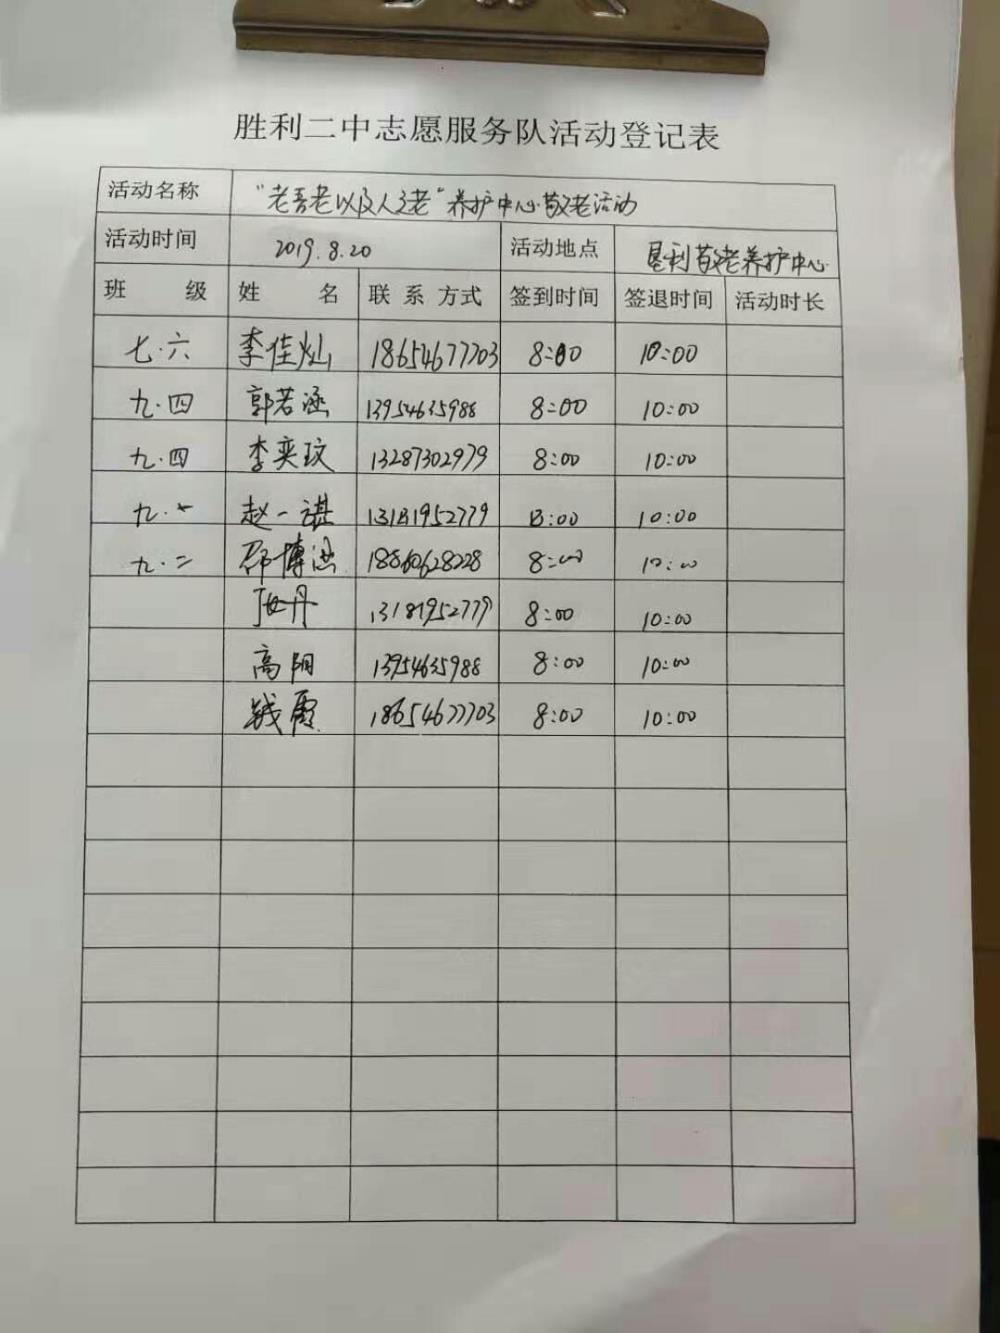 胜利二中志愿服务队活动登记表
活动名称 “老吾老以及人之老”养护中心敬老活动
活动时间 2019.8.20 活动地点 垦利敬老养护中心
班 级 姓 名 联 系 方式 签到时间 签退时间 活动时长
七.六 李佳灿 18654677703 8:00 10:00
九.四 郭若涵 13954635988 8:00 10:00
九.四 李奕玟 13287302979 8:00 10:00
九. 赵一谌 13181952779 8:00 10:00
九.二 邵博洪 18860628228 8:00 10:00
丹 13181952779 8:00 10:00
高阳 13954635988 8:00 10:00
钱霞 18654677703 8:00 10:00